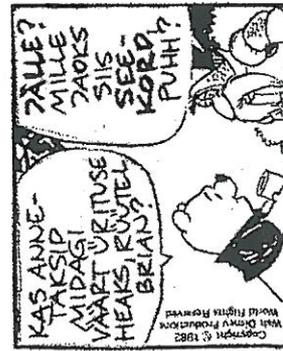 KAS ANNE-
TAKSIP
MIDAGI
VÄÄRT ÜRITUSE
HEAKS, RÜÜTEL
BRIAN?
JÄLLE?
MILLE
JAOKS
SIIS
SEE-
KORD,
PUHH?
Copyright © 1982
Walt Disney Productions
World Rights Reserved